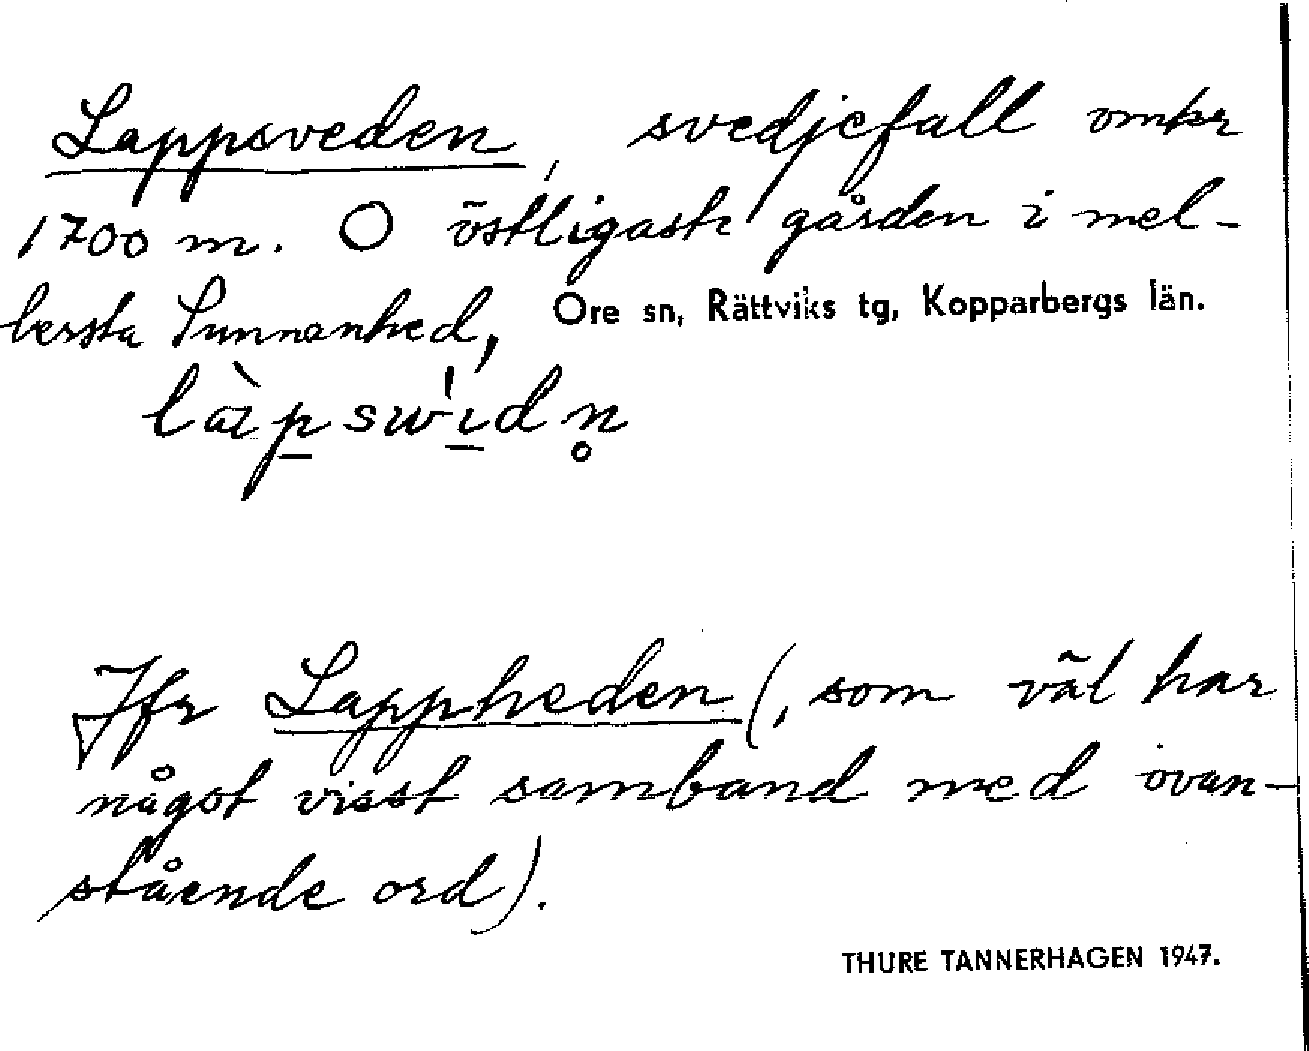 Lappsveden, svedjefall omkr
1700 m. O östligaste gården i mel-
lersta Sunnanhed, Ore sn, Rättviks tg, Kopparbergs län.
Jfr Lappheden (, som väl har
något visst samband med ovan-
stående ord).
THURE TANNERHAGEN 1947.